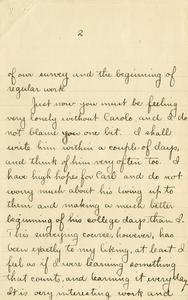 2
of our survey and the beginning of
regular work.
Just now you must be feeling
very lonely without Carolo, and I do
not blame you one bit. I shall
write him within a couple of days,
and think of him very often too. I
have high hopes for Carl and do not
worry much about his living up to
them and making a much better
beginning of his college days than I.
This surveying course, however, has
been exactly to my liking, at least I
feel as if I were learning something
that counts, and learning it every day.
It is very interesting work and